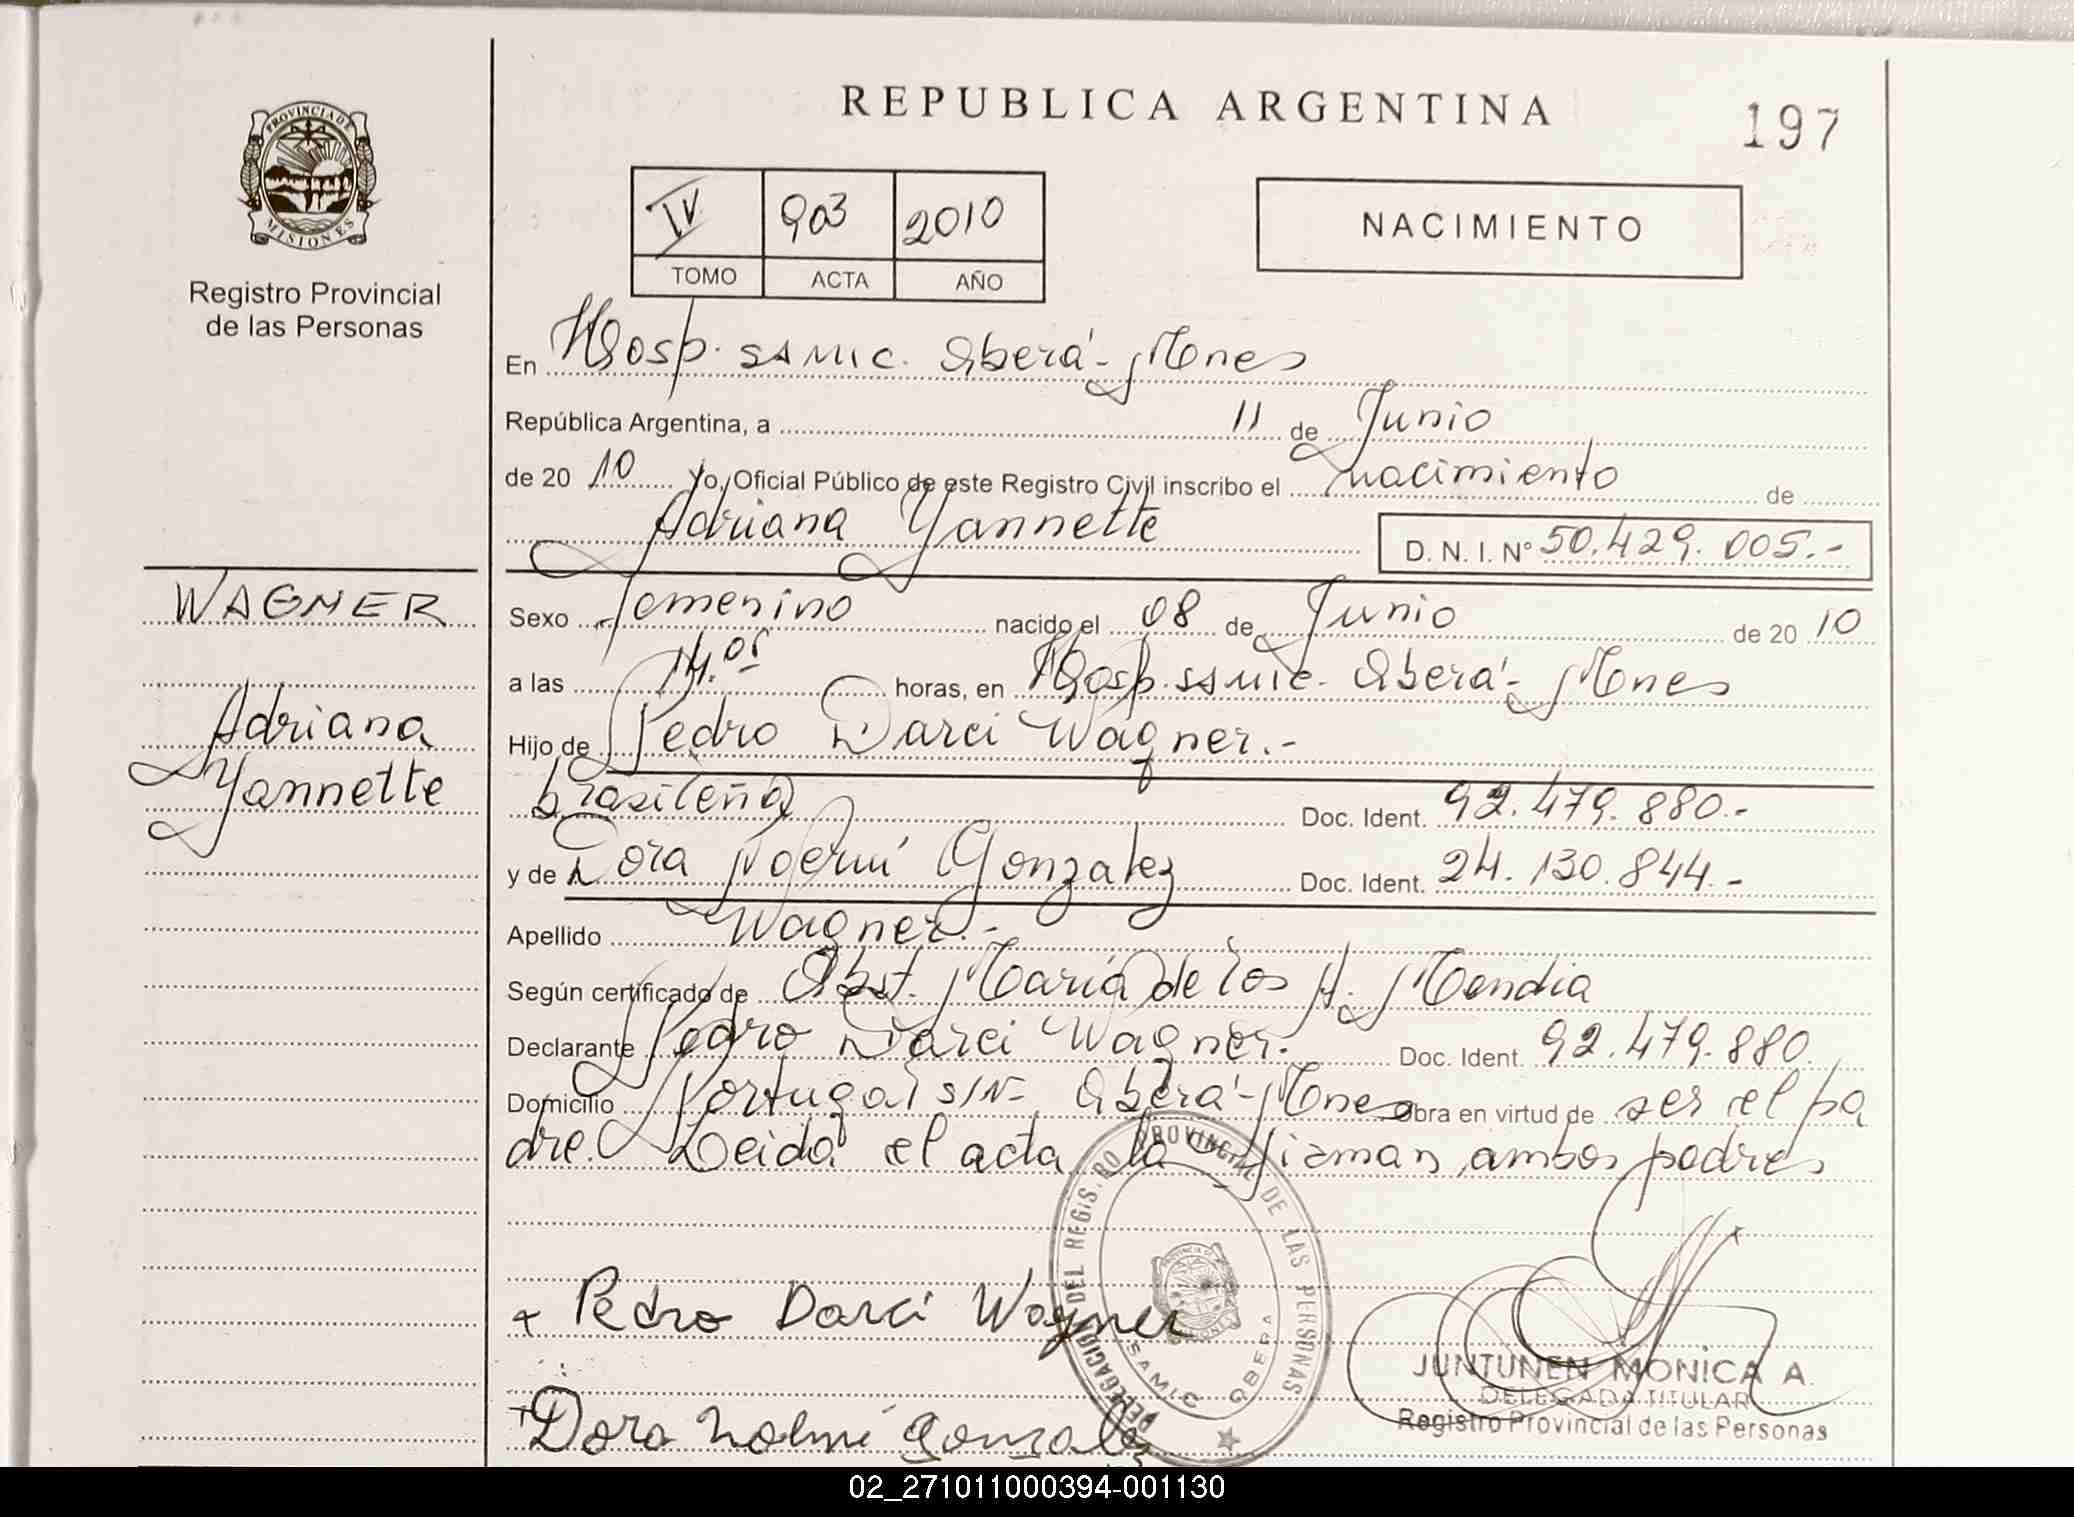 REPUBLICA ARGENTINA
197
PROVINCIA DE
MISIONES
Registro Provincial
de las Personas
IV 903 2010
TOMO ACTA AÑO
NACIMIENTO
En Hosp. SAMIC. Oberá - Mnes
República Argentina, a 11 de Junio
de 20 10 Yo, Oficial Público de este Registro Civil inscribo el nacimiento de
Adriana Yannette D. N. I. Nº 50.429.005.-
WAGNER
Adriana
Yannette
Sexo femenino nacido el 08 de Junio de 20 10
a las 14.05 horas, en Hosp. SAMIC. Oberá - Mnes
Hijo de Pedro Darci Wagner.-
brasileña Doc. Ident. 92.479.880.-
y de Dora Noemí Gonzalez Doc. Ident. 24.130.844.-
Apellido Wagner.-
Según certificado de Obst. María de los A. Mendia
Declarante Pedro Darci Wagner. Doc. Ident. 92.479.880.
Domicilio Portugal S/N- Oberá - Mnes obra en virtud de ser el pa
dre. Leida el acta la firman ambos padres
DELEGACION DEL REGISTRO PROVINCIAL DE LAS PERSONAS
SAMIC OBERA
Pedro Darci Wagner
JUNTUNEN MONICA A.
DELEGADA TITULAR
Registro Provincial de las Personas
Dora Gonzalez
02_271011000394-001130